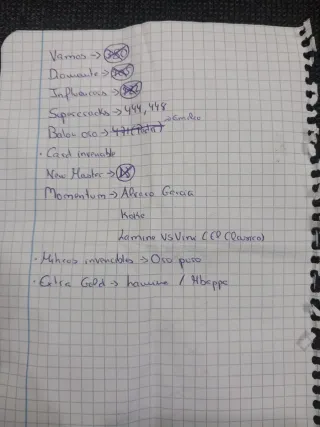 Vamos →
Diamante →
Influencers →
Supercracks → 444, 448
Balon oro → Emilio
· Card invencible
New Master →
Momentum → Alvaro Garcia
Koke
Lamine VS Vini (El Clasico)
· Mihcos invencibles → Oro puro
· Extra Gold → Lamine / Mbappe